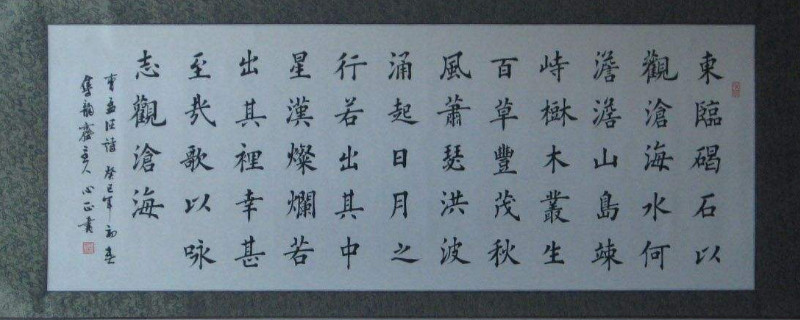 東臨碣石以
觀滄海水何
澹澹山島竦
峙樹木叢生
百草豐茂秋
風蕭瑟洪波
涌起日月之
行若出其中
星漢燦爛若
出其裡幸甚
至哉歌以咏
志觀滄海
曹孟德詩 癸巳年初春
龍齋主人心正書